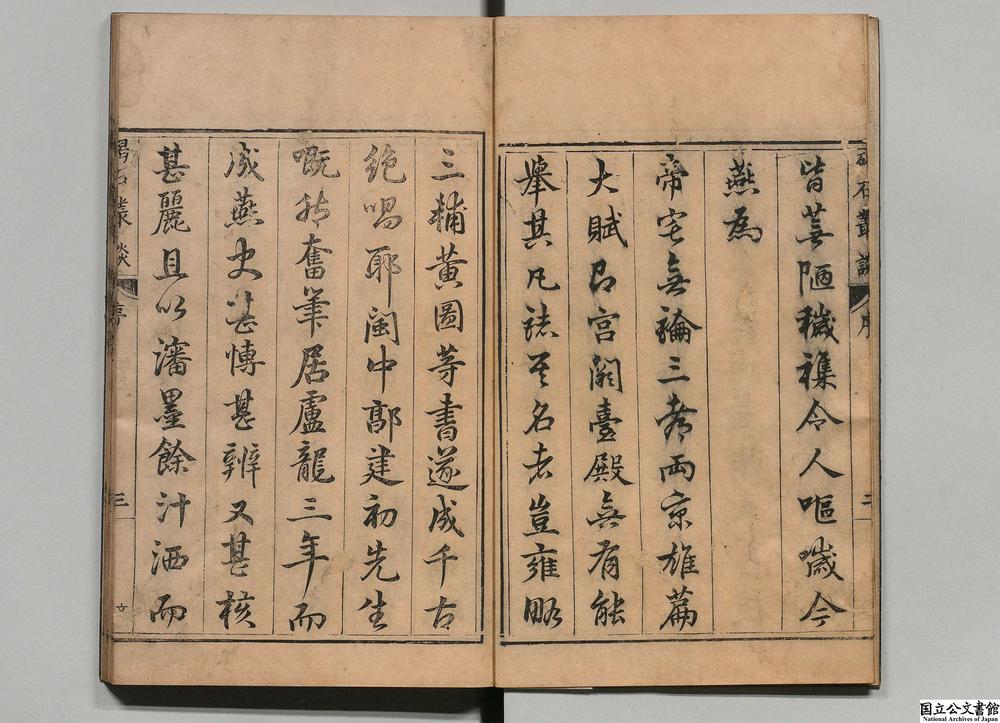 碣石叢談 序 二
皆蕪陋穢襍令人嘔噦今
燕為
帝宅無論三都兩京雄篇
大賦即宮闕臺殿無有能
舉其凡誌其名者豈雍略
三輔黃圖等書遂成千古
絶唱耶閩中郭建初先生
嘅然奮筆居盧龍三年而
成燕史甚博甚辨又甚核
甚麗且以瀋墨餘汁洒而
碣石叢談 序 三
国立公文書館
National Archives of Japan